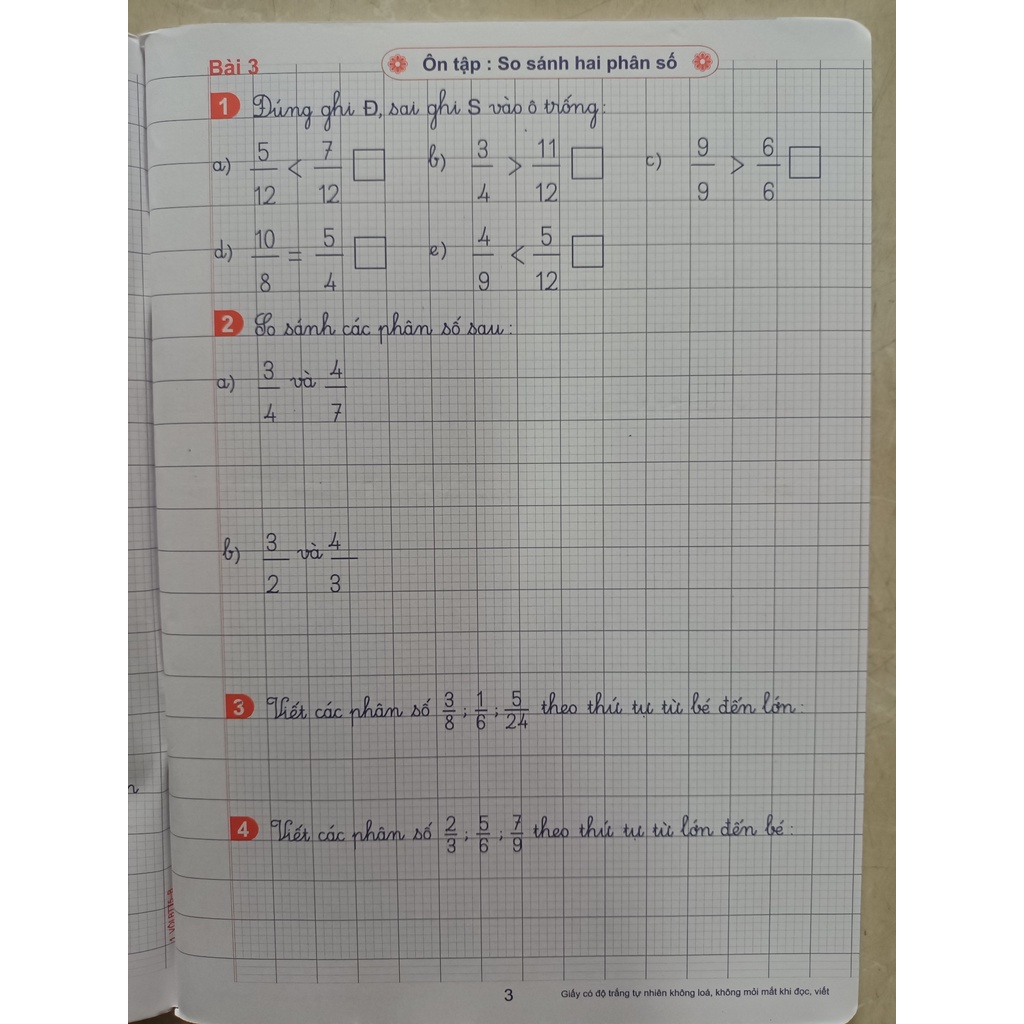 Bài 3
Ôn tập : So sánh hai phân số
1 Đúng ghi Đ, sai ghi S vào ô trống:
a) 5/12 < 7/12 □ b) 3/4 > 11/12 □ c) 9/9 > 6/6 □
d) 10/8 = 5/4 □ e) 4/9 < 5/12 □
2 So sánh các phân số sau:
a) 3/4 và 4/7
b) 3/2 và 4/3
3 Viết các phân số 3/8 ; 1/6 ; 5/24 theo thứ tự từ bé đến lớn:
4 Viết các phân số 2/3 ; 5/6 ; 7/9 theo thứ tự từ lớn đến bé:
3
Giấy có độ trắng tự nhiên không loá, không mỏi mắt khi đọc, viết